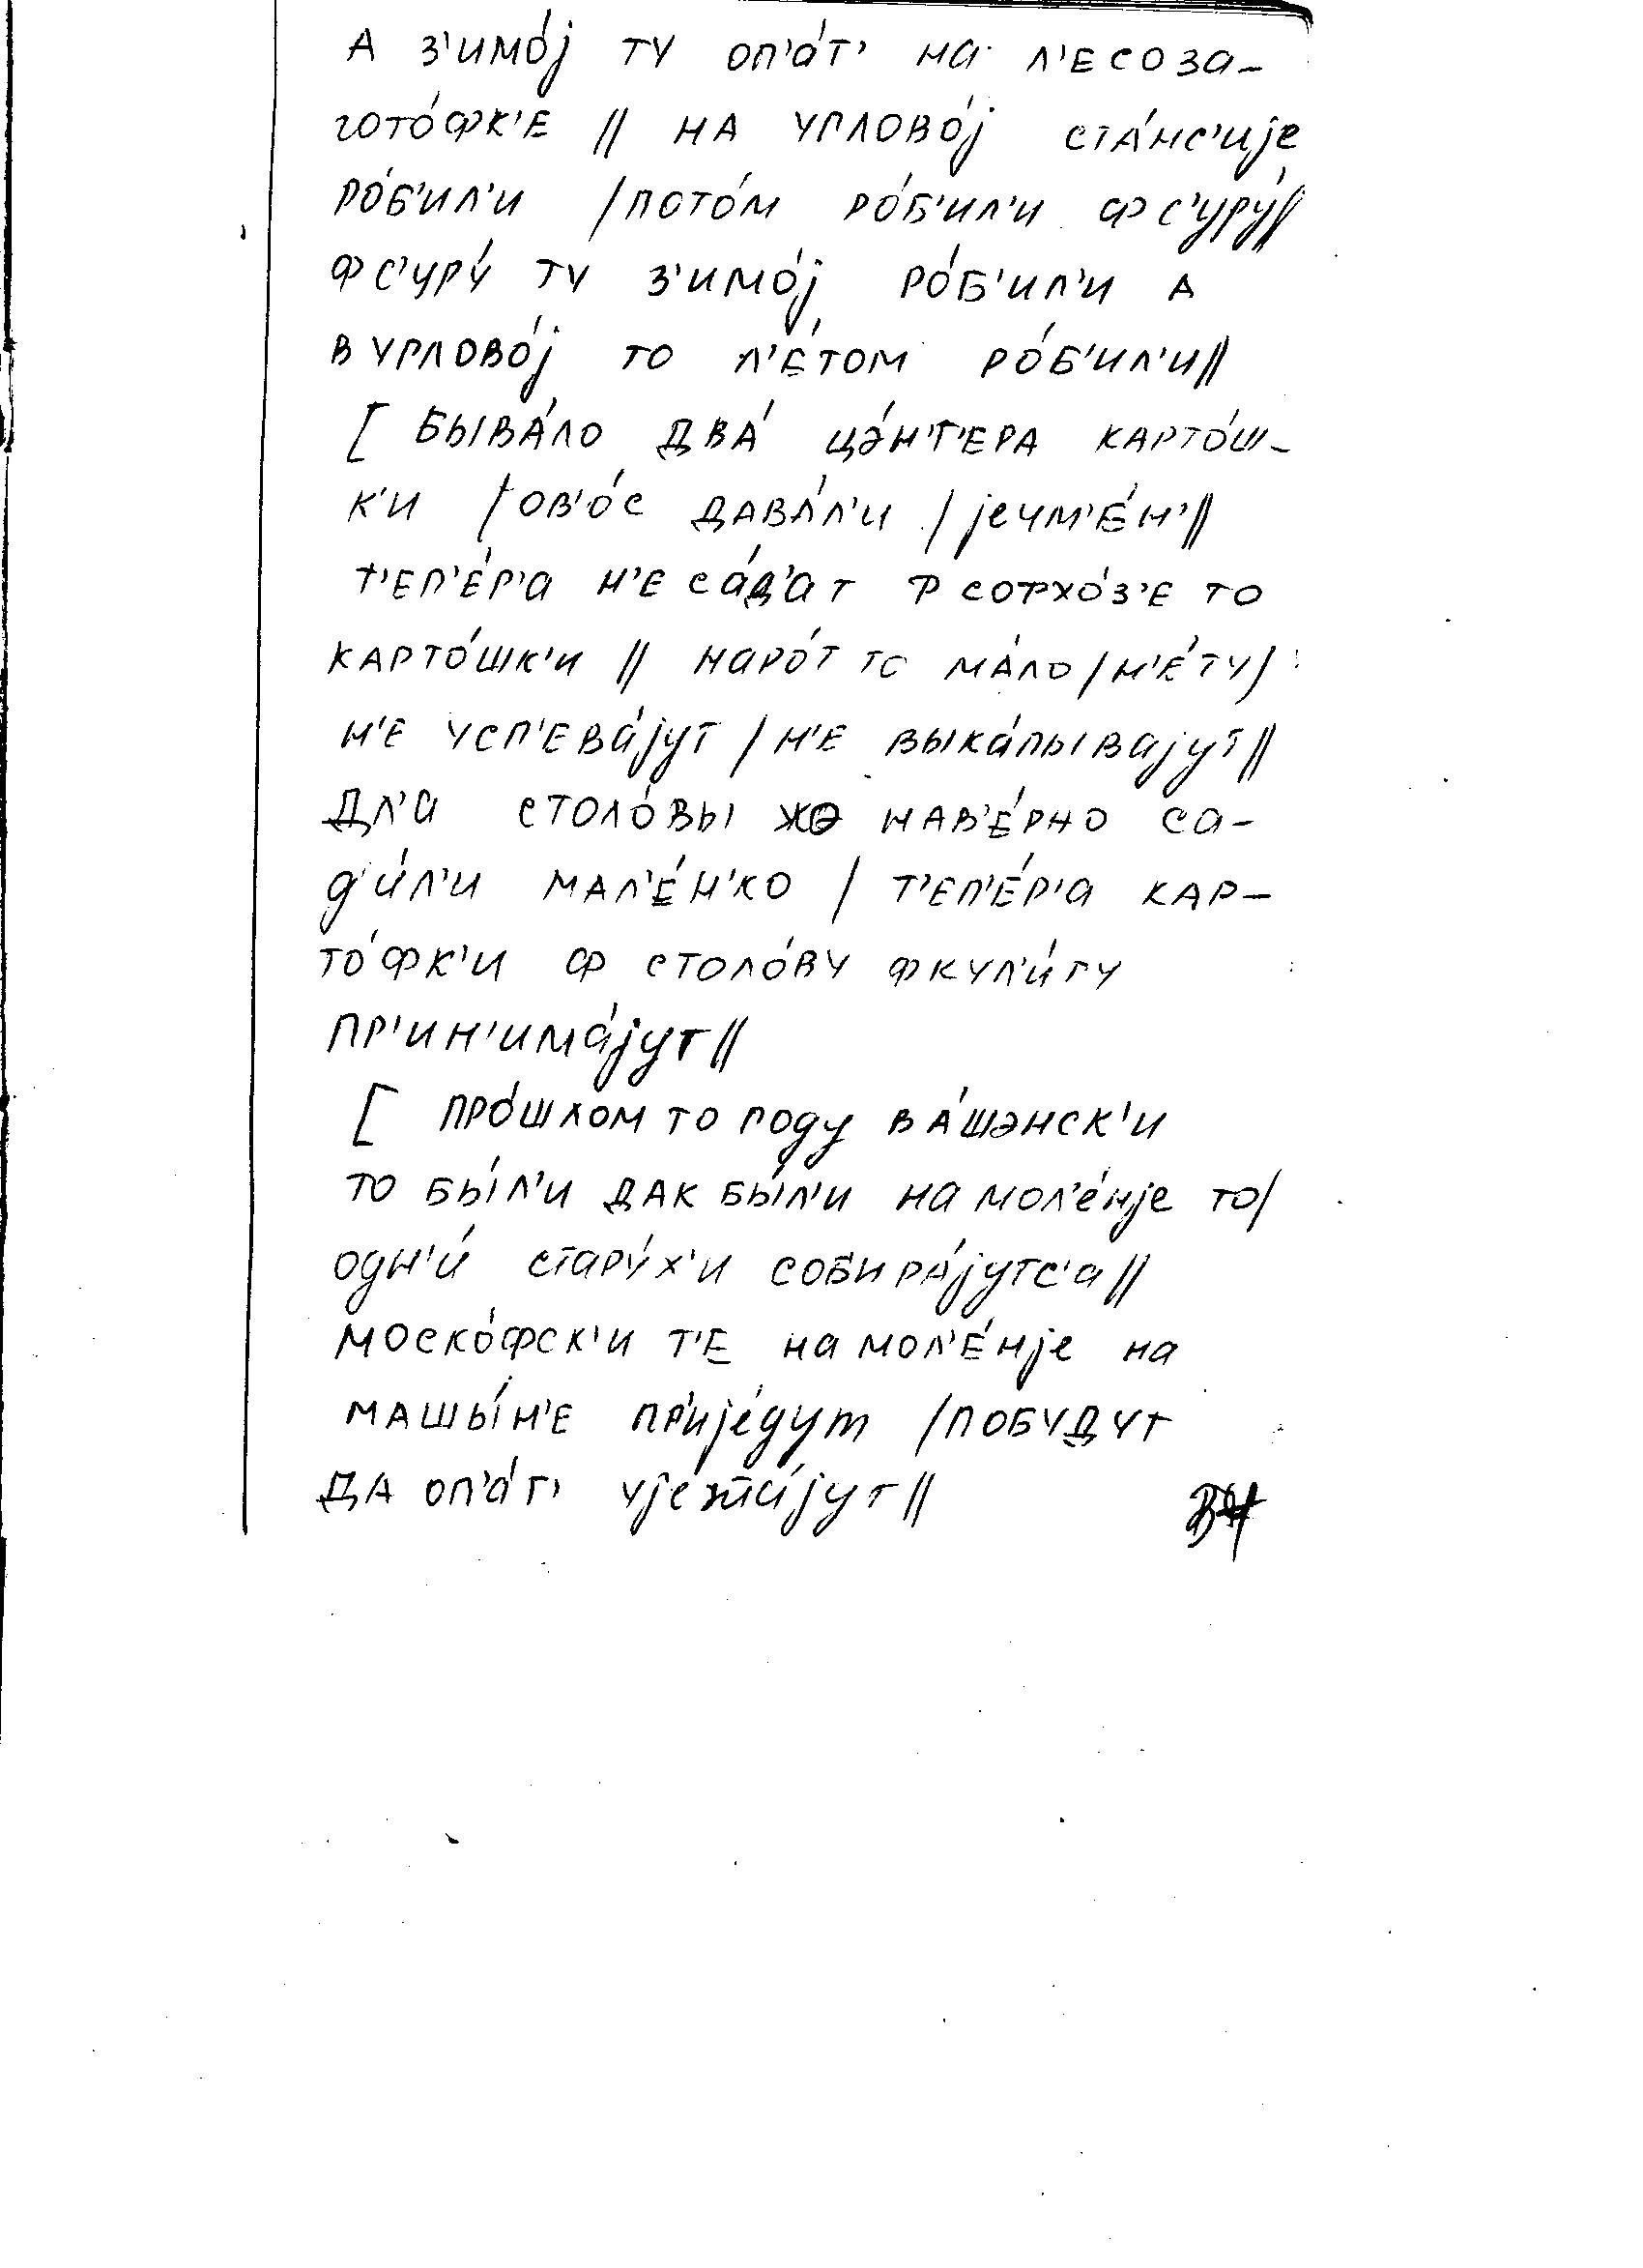 А з'имо́ј ту оп'а́т' на л'есоза-
гото́фк'е // на углово́ј ста́нс'ије
ро́б'ил'и / пото́м ро́б'ил'и ф с'уру́//
фс'уру́ ту з'имо́ј ро́б'ил'и а
в углово́ј то л'е́том ро́б'ил'и//
[ быва́ло два́ цэ́н'т'ера карто́ш-
к'и / ов'о́с дава́л'и / јечм'е́н'//
т'еп'е́р'а н'е са́д'ат ф софхо́з'е то
карто́шк'и // наро́т то ма́ло / н'е́ту /
н'е усп'ева́јут / н'е выка́пывајут//
дл'а столо́вы жэ нав'е́рно са-
д'и́л'и мал'е́н'ко / т'еп'е́р'а кар-
то́фк'и ф столо́ву фкул'и́гу
пр'ин'има́јут//
[ про́шлом то году ва́шэнск'и
то бы́л'и дак бы́л'и на мол'е́нје то/
одн'и́ стару́х'и собира́јутс'а//
моско́фск'и т'е на мол'е́нје на
машы́н'е пр'ије́дут / побудут
да оп'а́т' ује